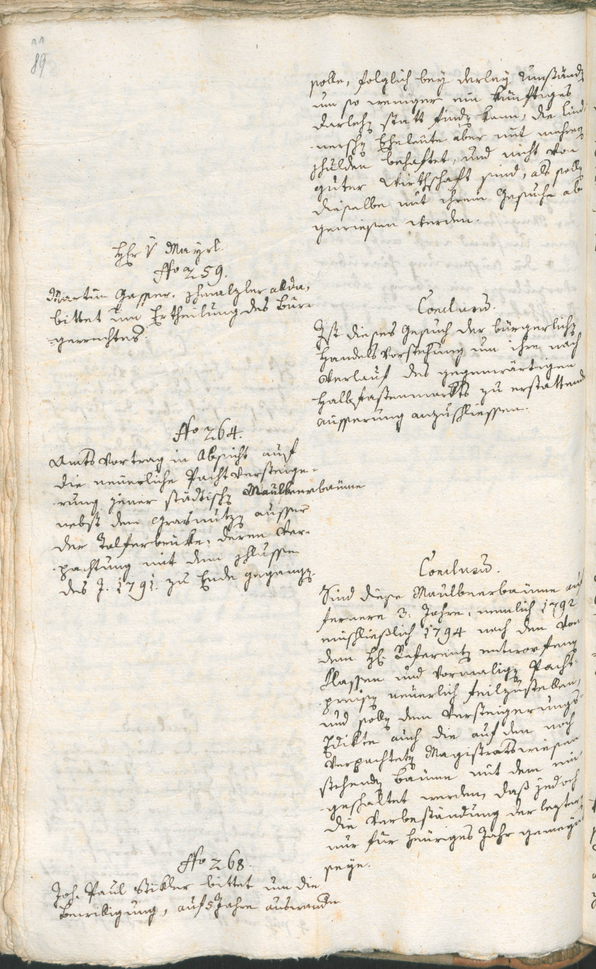 89
solle, folglich bey derley Umständ
um so weniger ein künftiges
Darlehn statt finden kann, die
Eheleute aber mit mehrer
schulden behaftet, und nicht von
guter Wirthschaft sind, als solle
dieselbe mit ihrem Gesuche ab
gewiesen werden.
Hr v Mayrl
No 259.
Martin Gasser, schmalzler alda,
bittet um Ertheilung des Bür-
gerrechtes
Conclusum.
Ist dieses Gesuch der bürgerlichen
Handels Vorstehung um ihre nach
Verlauf des gegenwärtigen
Halbfastenmarkts zu erstattend
äusserung anzuschliessen.
No 264.
Amts Vortrag in Absicht auf
die neuerliche Pacht Versteige-
rung jener städtischen Maulbeerbäume
nebst dem Grasnutzen ausser
der Talferbrücke, deren Ver-
pachtung mit dem schlusse
des J. 1791. zu Ende gegangen
Conclusum.
Sind diese Maulbeerbäume auf
fernere 3. Jahre, nemlich 1792
einschließlich 1794 nach den von
dem Hr Referenten entworfenen
Klassen und vormaligen Pacht-
preisen neuerlich feilzustellen,
und solle dem Versteigerungs
Edikte auch die auf den noch
verpachteten Magistratswiesen
stehenden bäume mit dem ein-
geschaltet werden, daß jedoch
die Verbeständung der letzten
nur für heuriges Jahr gemeynt
seye.
No 268.
Joh. Paul bittet um die
Bewilligung, auf 5 Jahre auswandern